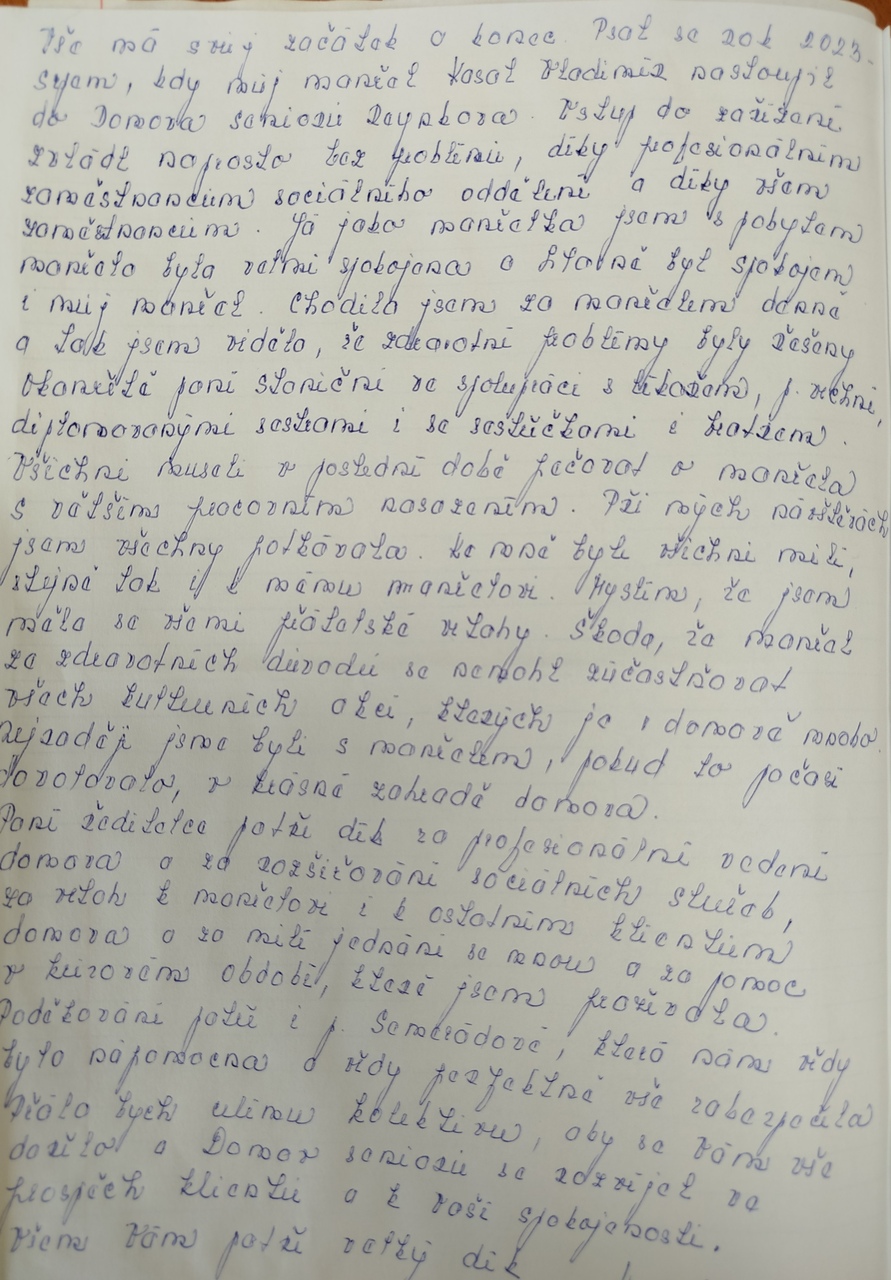 Vše má svůj začátek a konec. Psal se rok 2023-
srpen, kdy můj manžel Kasal Vladimír nastoupil
do Domova seniorů. Vstup do zařízení
zvládl naprosto bez problémů, díky profesionálním
zaměstnancům sociálního oddělení a díky všem
zaměstnancům. Já jako manželka jsem s pobytem
manžela byla velmi spokojena a hlavně byl spokojen
i můj manžel. Chodila jsem za manželem denně
a tak jsem viděla, že zdravotní problémy byly řešeny
okamžitě paní staniční ve spolupráci s lékařem, p. vrchní,
diplomovanými sestrami i se sestřičkami i bratrem.
Všichni museli v poslední době pečovat o manžela
s větším pracovním nasazením. Při mých návštěvách
jsem všechny potkávala. Ke mně byli všichni milí,
stejně tak i k mému manželovi. Myslím, že jsem
měla se všemi přátelské vztahy. Škoda, že manžel
ze zdravotních důvodů se nemohl zúčastňovat
všech kulturních akcí, kterých je v domově mnoho.
Nejraději jsme byli s manželem, pokud to počasí
dovolovalo, v krásné zahradě domova.
Paní ředitelce patří dík za profesionální vedení
domova a za rozšiřování sociálních služeb,
za vztah k manželovi i k ostatním klientům
domova a za milé jednání se mnou a za pomoc
v krizovém období, které jsem prožívala.
Poděkování patří i p. Semerádové, která nám vždy
byla nápomocna a vždy perfektně vše zabezpečila
Přála bych celému kolektivu, aby se Vám vše
dařilo a Domov seniorů se rozvíjel ve
prospěch klientů a k vaší spokojenosti.
Všem Vám patří velký dík